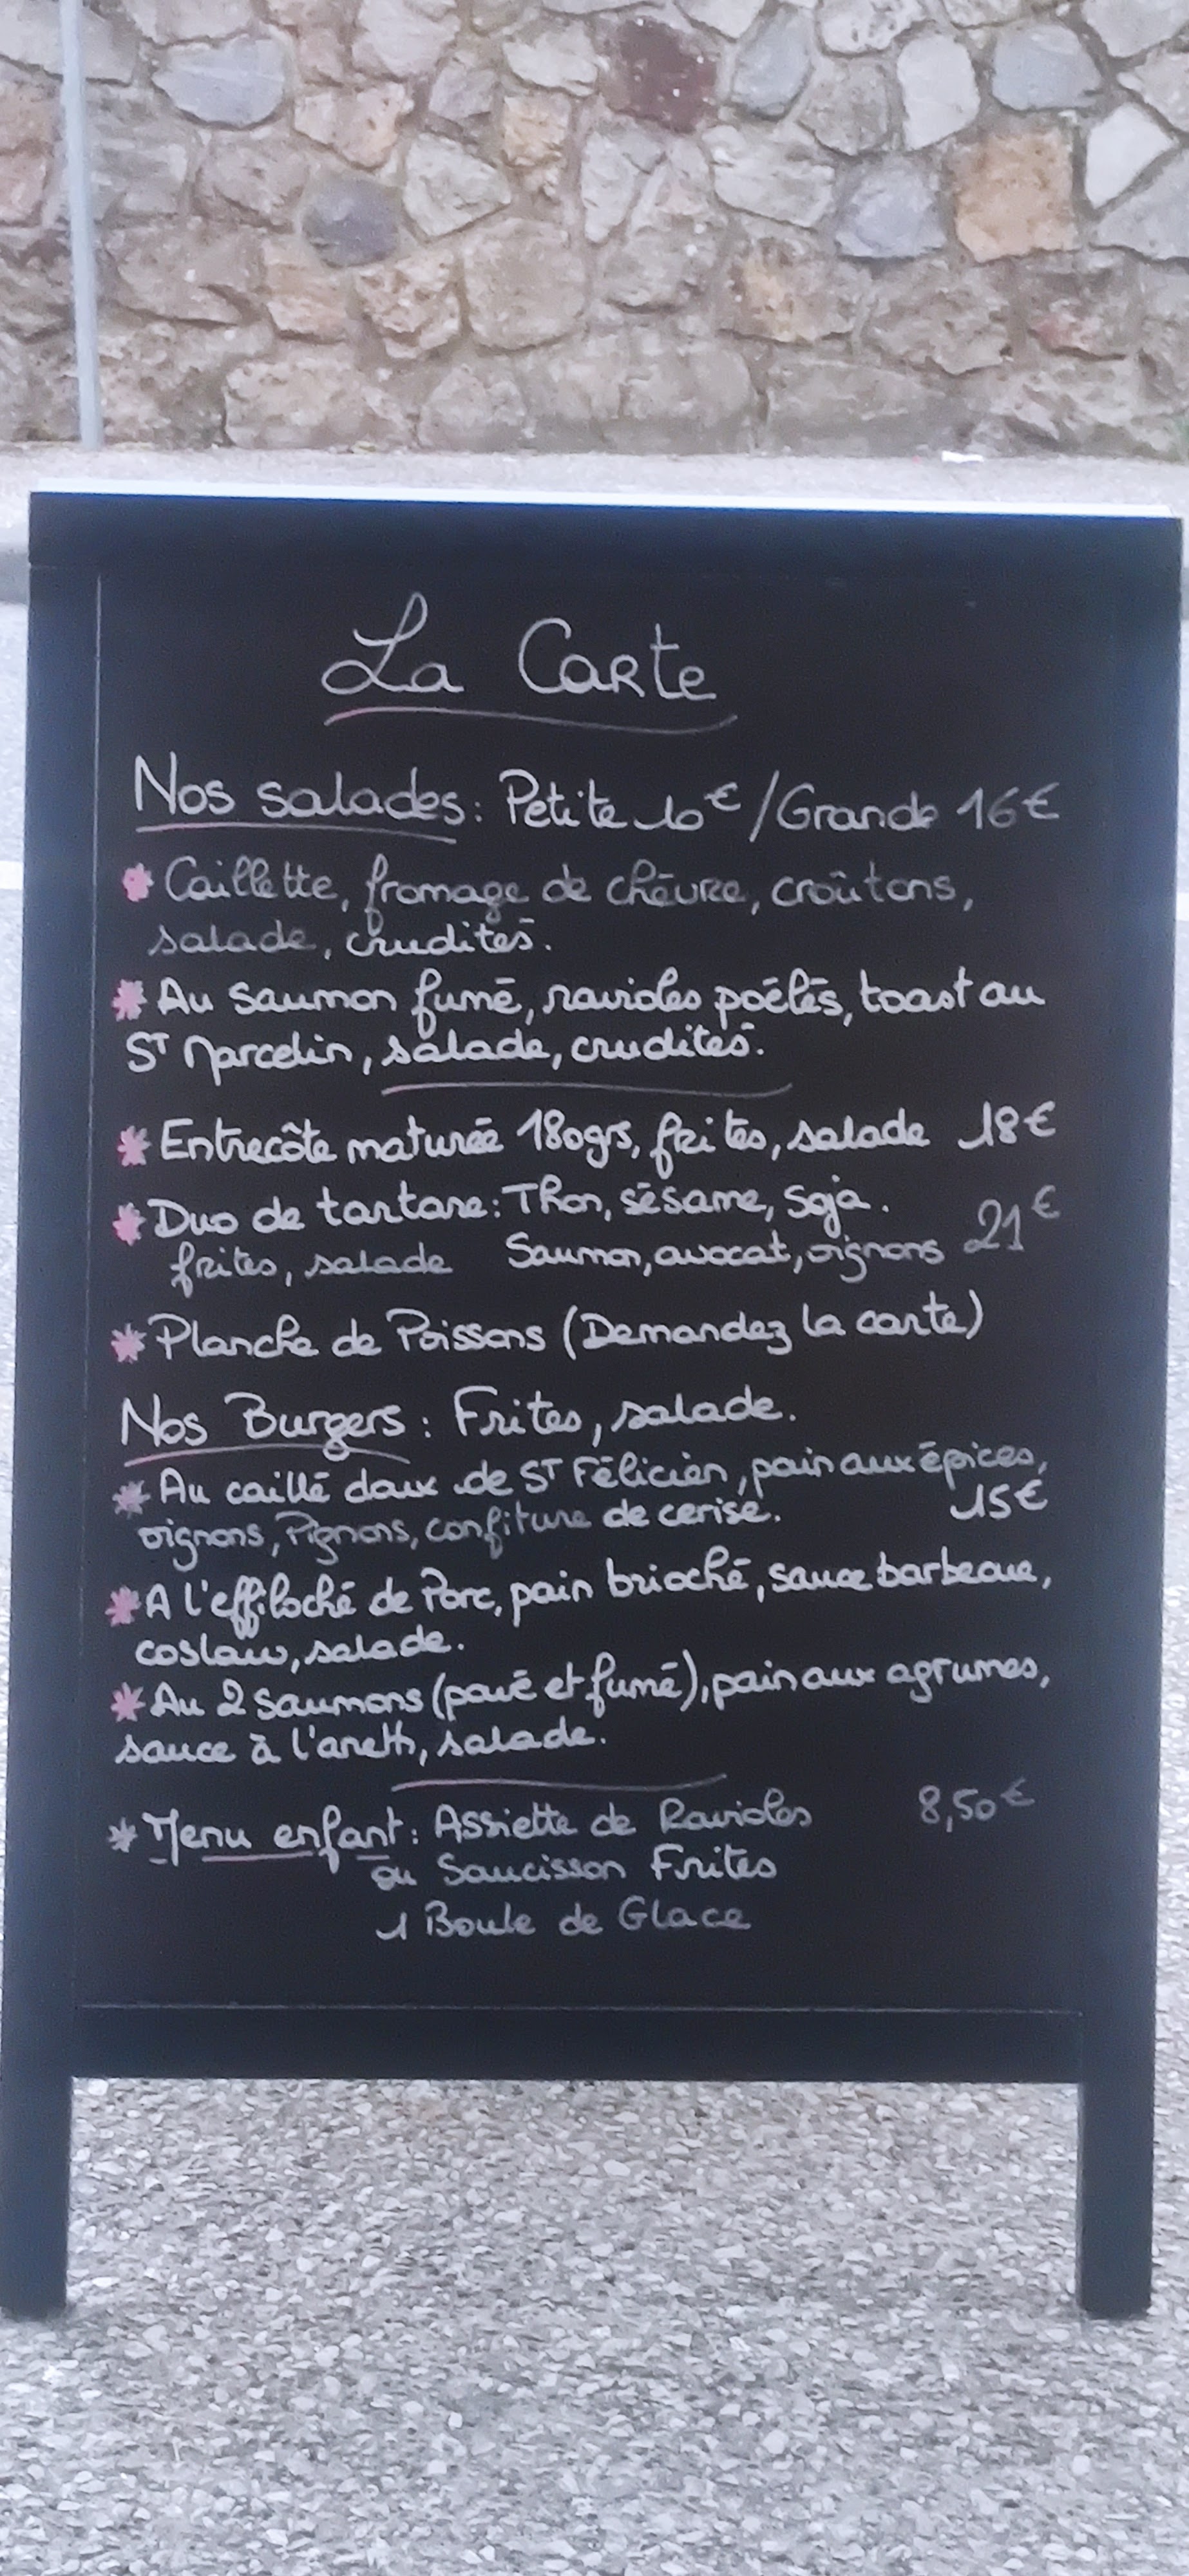 La Carte
Nos salades: Petite 10€/Grande 16€
* Caillette, fromage de chèvre, croûtons,
salade, crudités.
* Au saumon fumé, ravioles poélés, toast au
ST Marcelin, salade, crudités.
* Entrecôte maturée 180grs, frites, salade 18€
* Duo de tartare: Thon, sésame, Soja.
frites, salade Saumon, avocat, oignons 21€
* Planche de Poissons (Demandez la carte)
Nos Burgers: Frites, salade.
* Au caillé doux de ST Félicien, pain aux épices,
oignons, Pignons, confiture de cerise. 15€
* A l'effiloché de Porc, pain brioché, sauce barbecue,
coslaw, salade.
* Au 2 saumons (pavé et fumé), pain aux agrumes,
sauce à l'aneth, salade.
* Menu enfant: Assiette de Ravioles 8,50€
ou Saucisson Frites
1 Boule de Glace